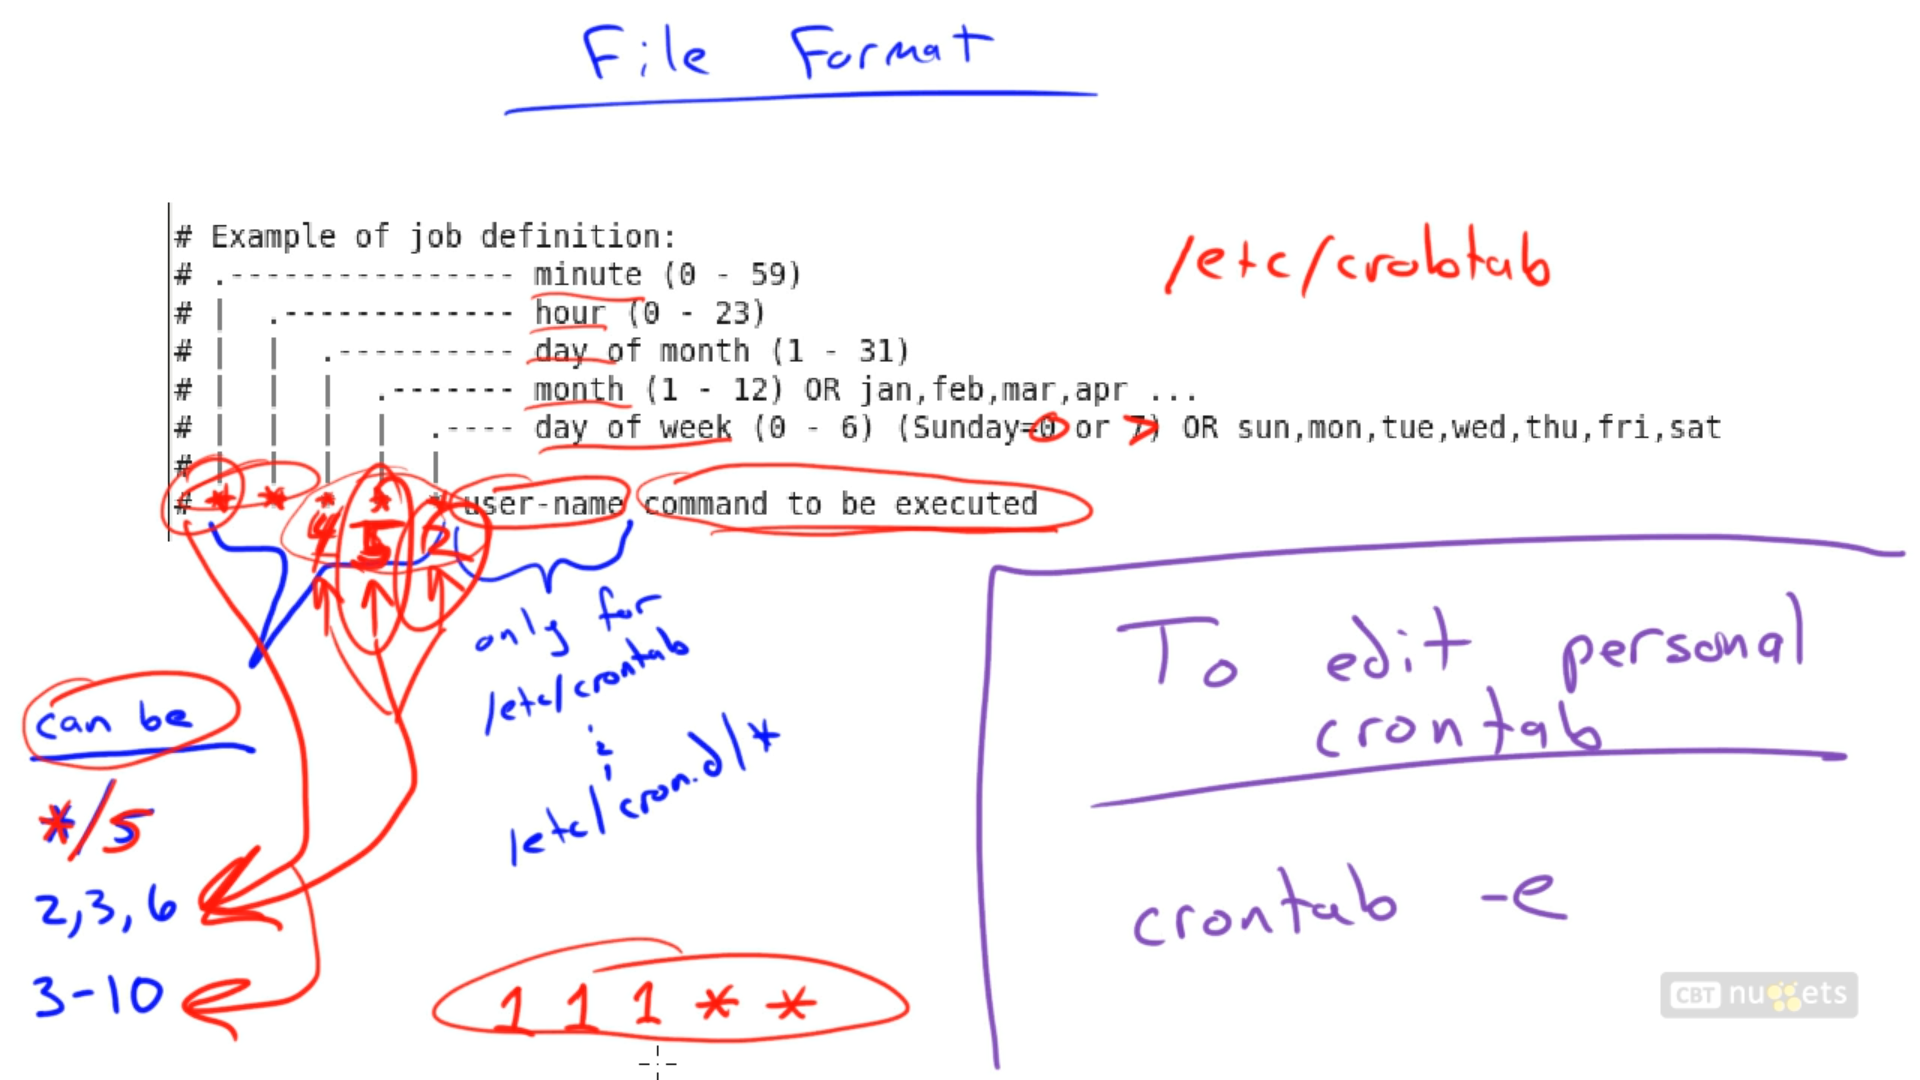 File Format
# Example of job definition:
# .---------------- minute (0 - 59)
# | .------------- hour (0 - 23)
# | | .---------- day of month (1 - 31)
# | | | .------- month (1 - 12) OR jan,feb,mar,apr ...
# | | | | .---- day of week (0 - 6) (Sunday=0 or 7) OR sun,mon,tue,wed,thu,fri,sat
# | | | | |
# * * * * * user-name command to be executed
4 5 2
/etc/crobtab
only for
/etc/crontab
/etc/cron.d/*
can be
*/5
2,3,6
3-10
1 1 1 * *
To edit personal
crontab
crontab -e
CBT nuggets